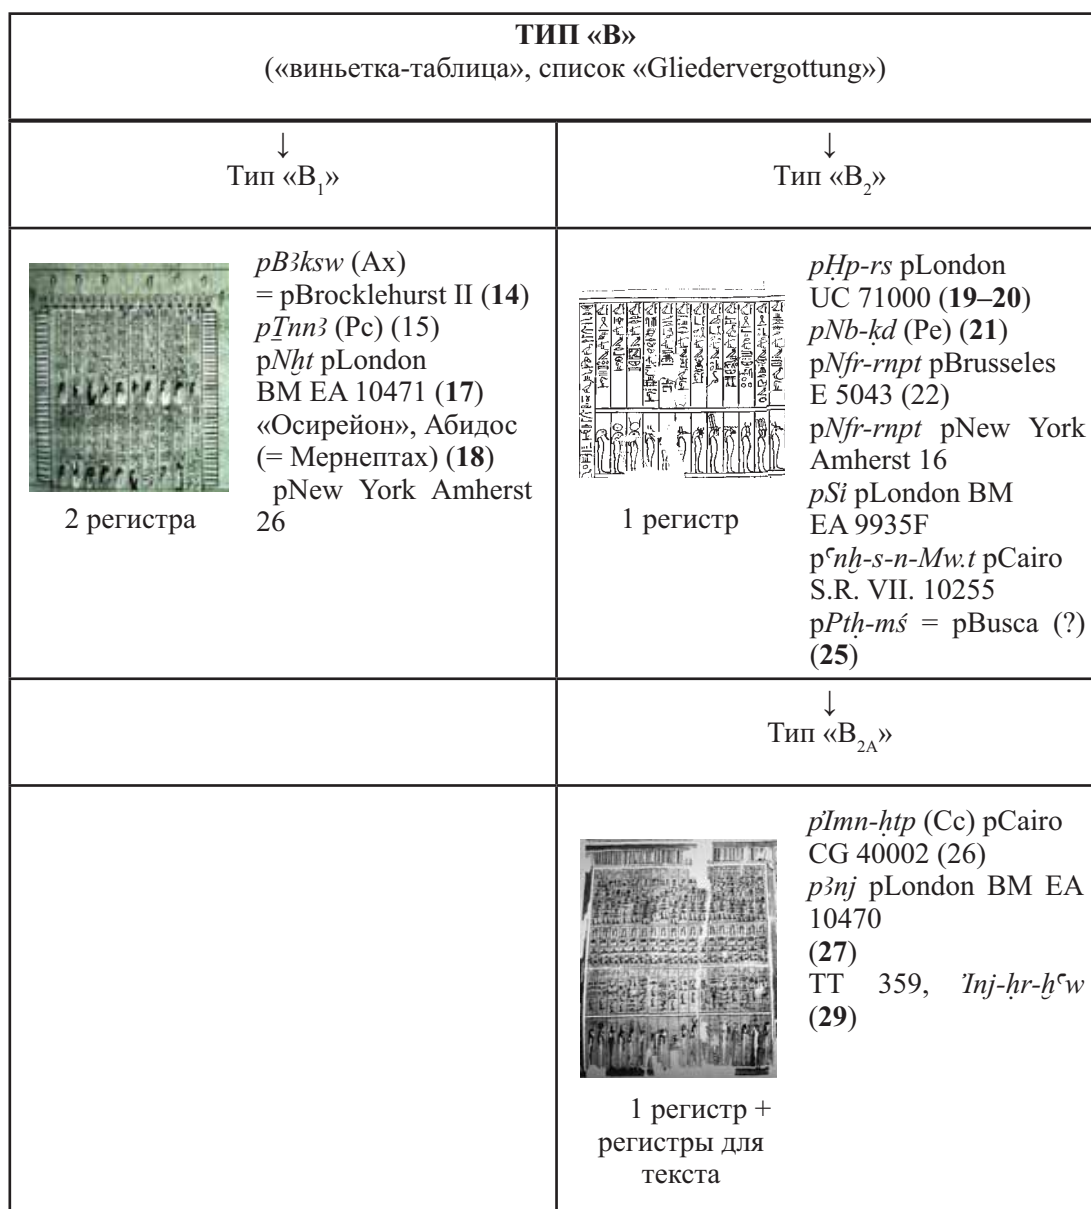 ТИП «B»
(«виньетка-таблица», список «Gliedervergottung»)
↓
Тип «B₁»
↓
Тип «B₂»
pBꜣksw (Ax)
= pBrocklehurst II (14)
pṮnnꜣ (Pc) (15)
pNḫt pLondon
BM EA 10471 (17)
«Осирейон», Абидос
(= Мернептах) (18)
pNew York Amherst
26
2 регистра
pḤp-rs pLondon
UC 71000 (19–20)
pNb-ḳd (Pe) (21)
pNfr-rnpt pBrusseles
E 5043 (22)
pNfr-rnpt pNew York
Amherst 16
pSỉ pLondon BM
EA 9935F
pꜥnḫ-s-n-Mw.t pCairo
S.R. VII. 10255
pPtḥ-mś = pBusca (?)
(25)
1 регистр
↓
Тип «B₂A»
pỈmn-ḥtp (Cc) pCairo
CG 40002 (26)
pꜣnj pLondon BM EA
10470
(27)
TT 359, Ỉnj-ḥr-ḫꜥw
(29)
1 регистр +
регистры для
текста